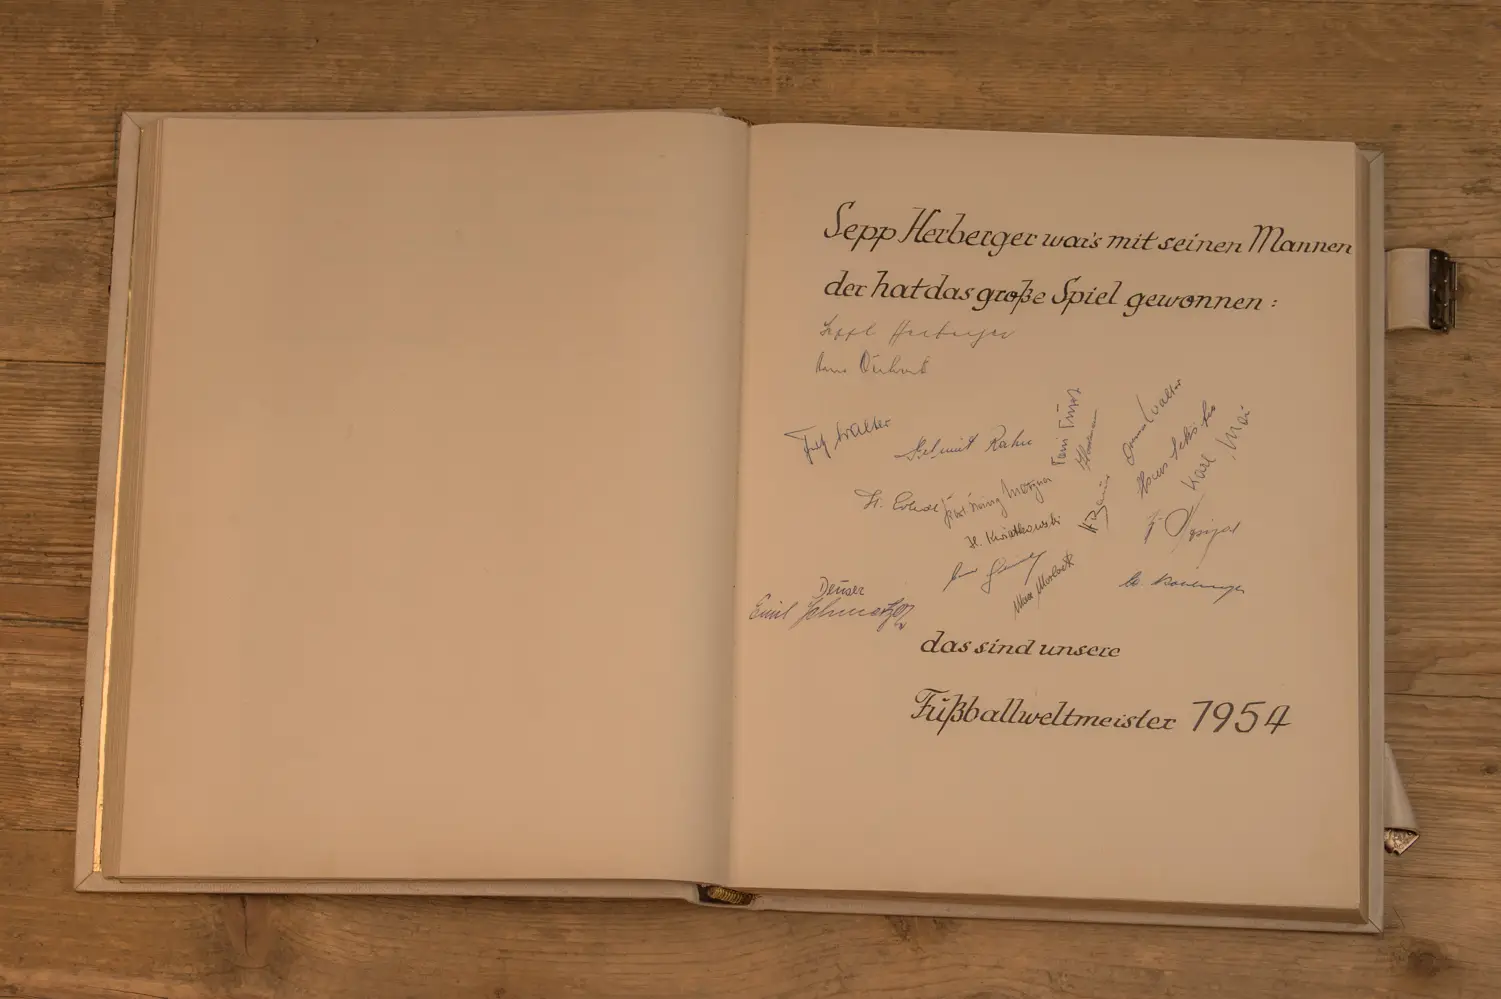 Sepp Herberger war's mit seinen Mannen
der hat das große Spiel gewonnen :
Sepp Herberger
Fritz Walter
Helmut Rahn
Toni Turek
Ottmar Walter
Hans Schäfer
Karl Mai
H. Eckel
Morlock
H. Kwiatkowski
H. Bauer
J. Posipal
Max Morlock
W. Kohlmeyer
Deuser
Emil Schmetzer
das sind unsere
Fußballweltmeister 1954